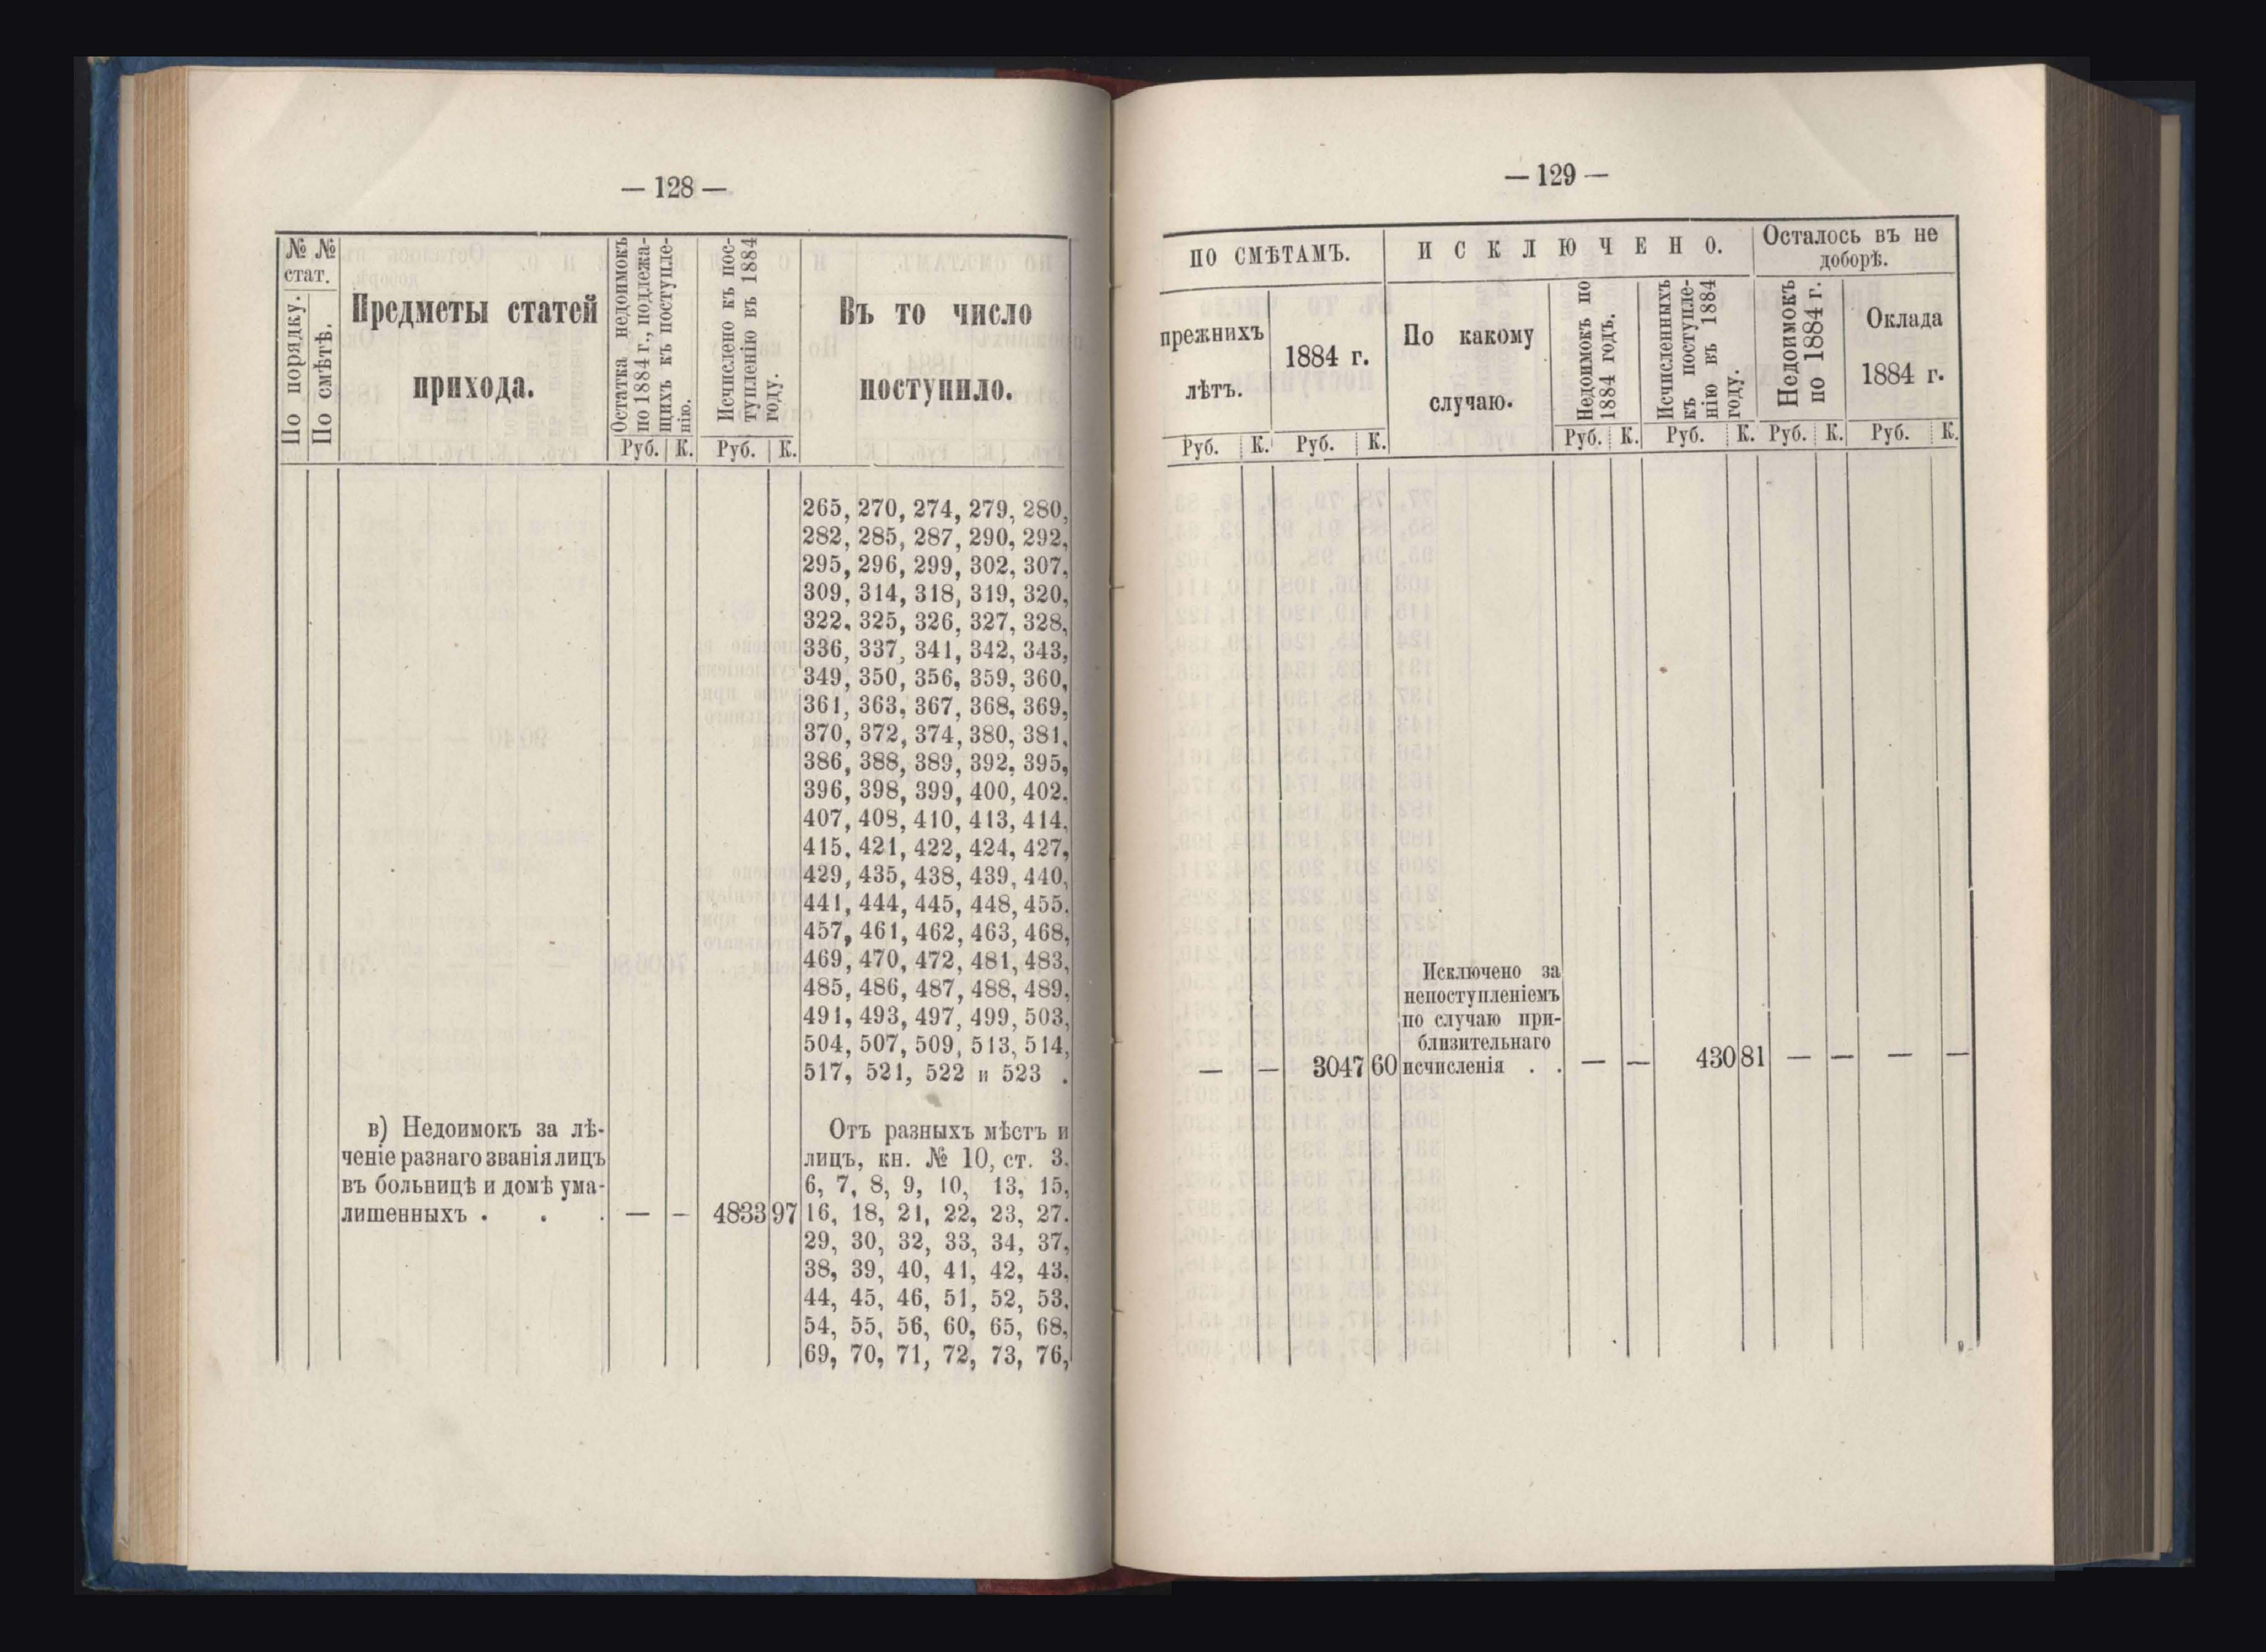 — 128 —
№ №
стат.
По порядку.
По смѣтѣ.
Предметы статей
прихода.
Остатка недоимокъ
по 1884 г., подлежа-
щихъ къ поступле-
нію.
Исчислено къ пос-
тупленію въ 1884
году.
Въ то число
поступило.
Руб. К. Руб. К.
265, 270, 274, 279, 280,
282, 285, 287, 290, 292,
295, 296, 299, 302, 307,
309, 314, 318, 319, 320,
322, 325, 326, 327, 328,
336, 337, 341, 342, 343,
349, 350, 356, 359, 360,
361, 363, 367, 368, 369,
370, 372, 374, 380, 381,
386, 388, 389, 392, 395,
396, 398, 399, 400, 402,
407, 408, 410, 413, 414,
415, 421, 422, 424, 427,
429, 435, 438, 439, 440,
441, 444, 445, 448, 455,
457, 461, 462, 463, 468,
469, 470, 472, 481, 483,
485, 486, 487, 488, 489,
491, 493, 497, 499, 503,
504, 507, 509, 513, 514,
517, 521, 522 и 523 .
в) Недоимокъ за лѣ-
ченіе разнаго званія лицъ
въ больницѣ и домѣ ума-
лишенныхъ . . . — — 4833 97
Отъ разныхъ мѣстъ и
лицъ, кн. № 10, ст. 3,
6, 7, 8, 9, 10, 13, 15,
16, 18, 21, 22, 23, 27,
29, 30, 32, 33, 34, 37,
38, 39, 40, 41, 42, 43,
44, 45, 46, 51, 52, 53,
54, 55, 56, 60, 65, 68,
69, 70, 71, 72, 73, 76,
— 129 —
ПО СМѢТАМЪ.
ИСКЛЮЧЕНО.
Осталось въ не
доборѣ.
прежнихъ
лѣтъ.
1884 г.
По какому
случаю.
Недоимокъ по
1884 годъ.
Исчисленныхъ
къ поступле-
нію въ 1884
году.
Недоимокъ
по 1884 г.
Оклада
1884 г.
Руб. К. Руб. К. Руб. К. Руб. К. Руб. К. Руб. К.
Исключено за
непоступленіемъ
по случаю при-
близительнаго
— — 3047 60 исчисленія . . — — 430 81 — — — —